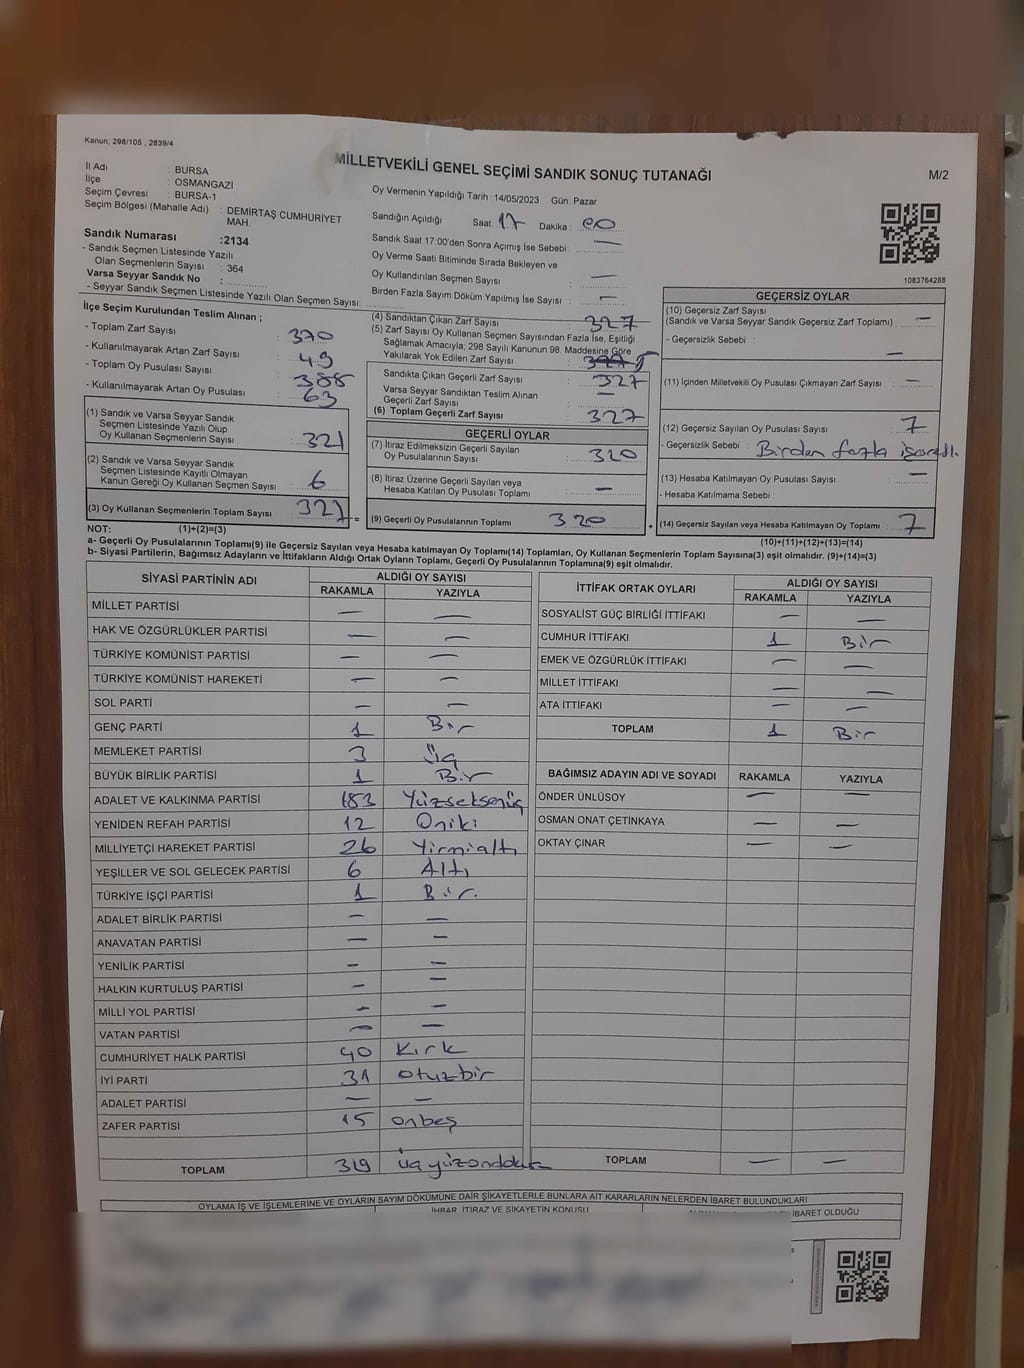 Kanun; 298/105 , 2839/4
MİLLETVEKİLİ GENEL SEÇİMİ SANDIK SONUÇ TUTANAĞI
M/2
İl Adı : BURSA
İlçe : OSMANGAZİ
Seçim Çevresi : BURSA-1
Seçim Bölgesi (Mahalle Adı) : DEMİRTAŞ CUMHURİYET
MAH.
Sandık Numarası :2134
- Sandık Seçmen Listesinde Yazılı
Olan Seçmenlerin Sayısı : 364
Varsa Seyyar Sandık No :
- Seyyar Sandık Seçmen Listesinde Yazılı Olan Seçmen Sayısı:
Oy Vermenin Yapıldığı Tarih : 14/05/2023 Gün: Pazar
Sandığın Açıldığı Saat: 17 Dakika : 00
Sandık Saat 17:00'den Sonra Açımış İse Sebebi : —
Oy Verme Saati Bitiminde Sırada Bekleyen ve
Oy Kullandırılan Seçmen Sayısı : —
Birden Fazla Sayım Döküm Yapılmış İse Sayısı : —
1083764288
İlçe Seçim Kurulundan Teslim Alınan ;
- Toplam Zarf Sayısı : 370
- Kullanılmayarak Artan Zarf Sayısı : 49
- Toplam Oy Pusulası Sayısı : 388
- Kullanılmayarak Artan Oy Pusulası : 63
(1) Sandık ve Varsa Seyyar Sandık
Seçmen Listesinde Yazılı Olup
Oy Kullanan Seçmenlerin Sayısı : 321
(2) Sandık ve Varsa Seyyar Sandık
Seçmen Listesinde Kayıtlı Olmayan
Kanun Gereği Oy Kullanan Seçmen Sayısı : 6
(3) Oy Kullanan Seçmenlerin Toplam Sayısı : 327
(4) Sandıktan Çıkan Zarf Sayısı : 327
(5) Zarf Sayısı Oy Kullanan Seçmen Sayısından Fazla İse, Eşitliği
Sağlamak Amacıyla; 298 Sayılı Kanunun 98. Maddesine Göre
Yakılarak Yok Edilen Zarf Sayısı :
Sandıkta Çıkan Geçerli Zarf Sayısı : 327
Varsa Seyyar Sandıktan Teslim Alınan
Geçerli Zarf Sayısı : —
(6) Toplam Geçerli Zarf Sayısı : 327
GEÇERLİ OYLAR
(7) İtiraz Edilmeksizin Geçerli Sayılan
Oy Pusulalarının Sayısı : 320
(8) İtiraz Üzerine Geçerli Sayılan veya
Hesaba Katılan Oy Pusulası Toplamı : —
= (9) Geçerli Oy Pusulalarının Toplamı : 320
GEÇERSİZ OYLAR
(10) Geçersiz Zarf Sayısı
(Sandık ve Varsa Seyyar Sandık Geçersiz Zarf Toplamı) : —
- Geçersizlik Sebebi : —
(11) İçinden Milletvekili Oy Pusulası Çıkmayan Zarf Sayısı : —
(12) Geçersiz Sayılan Oy Pusulası Sayısı : 7
- Geçersizlik Sebebi : Birden fazla
(13) Hesaba Katılmayan Oy Pusulası Sayısı : —
- Hesaba Katılmama Sebebi :
+ (14) Geçersiz Sayılan veya Hesaba Katılmayan Oy Toplamı : 7
NOT: (1)+(2)=(3)
(10)+(11)+(12)+(13)=(14)
a- Geçerli Oy Pusulalarının Toplamı(9) ile Geçersiz Sayılan veya Hesaba katılmayan Oy Toplamı(14) Toplamları, Oy Kullanan Seçmenlerin Toplam Sayısına(3) eşit olmalıdır. (9)+(14)=(3)
b- Siyasi Partilerin, Bağımsız Adayların ve İttifakların Aldığı Ortak Oyların Toplamı, Geçerli Oy Pusulalarının Toplamına(9) eşit olmalıdır.
SİYASİ PARTİNİN ADI ALDIĞI OY SAYISI
RAKAMLA YAZIYLA
MİLLET PARTİSİ — —
HAK VE ÖZGÜRLÜKLER PARTİSİ — —
TÜRKİYE KOMÜNİST PARTİSİ — —
TÜRKİYE KOMÜNİST HAREKETİ — —
SOL PARTİ — —
GENÇ PARTİ 1 Bir
MEMLEKET PARTİSİ 3 Üç
BÜYÜK BİRLİK PARTİSİ 1 Bir
ADALET VE KALKINMA PARTİSİ 183 Yüzseksenüç
YENİDEN REFAH PARTİSİ 12 Oniki
MİLLİYETÇİ HAREKET PARTİSİ 26 Yirmialtı
YEŞİLLER VE SOL GELECEK PARTİSİ 6 Altı
TÜRKİYE İŞÇİ PARTİSİ 1 Bir.
ADALET BİRLİK PARTİSİ — —
ANAVATAN PARTİSİ — —
YENİLİK PARTİSİ — —
HALKIN KURTULUŞ PARTİSİ — —
MİLLİ YOL PARTİSİ — —
VATAN PARTİSİ — —
CUMHURİYET HALK PARTİSİ 40 Kırk
İYİ PARTİ 31 otuzbir
ADALET PARTİSİ — —
ZAFER PARTİSİ 15 onbeş
TOPLAM 319 üçyüzondokuz
İTTİFAK ORTAK OYLARI ALDIĞI OY SAYISI
RAKAMLA YAZIYLA
SOSYALİST GÜÇ BİRLİĞİ İTTİFAKI — —
CUMHUR İTTİFAKI 1 Bir
EMEK VE ÖZGÜRLÜK İTTİFAKI — —
MİLLET İTTİFAKI — —
ATA İTTİFAKI — —
TOPLAM 1 Bir
BAĞIMSIZ ADAYIN ADI VE SOYADI RAKAMLA YAZIYLA
ÖNDER ÜNLÜSOY — —
OSMAN ONAT ÇETİNKAYA — —
OKTAY ÇINAR — —
TOPLAM — —
OYLAMA İŞ VE İŞLEMLERİNE VE OYLARIN SAYIM DÖKÜMÜNE DAİR ŞİKAYETLERLE BUNLARA AİT KARARLARIN NELERDEN İBARET BULUNDUKLARI
İHBAR, İTİRAZ VE ŞİKAYETİN KONUSU
İBARET OLDUĞU